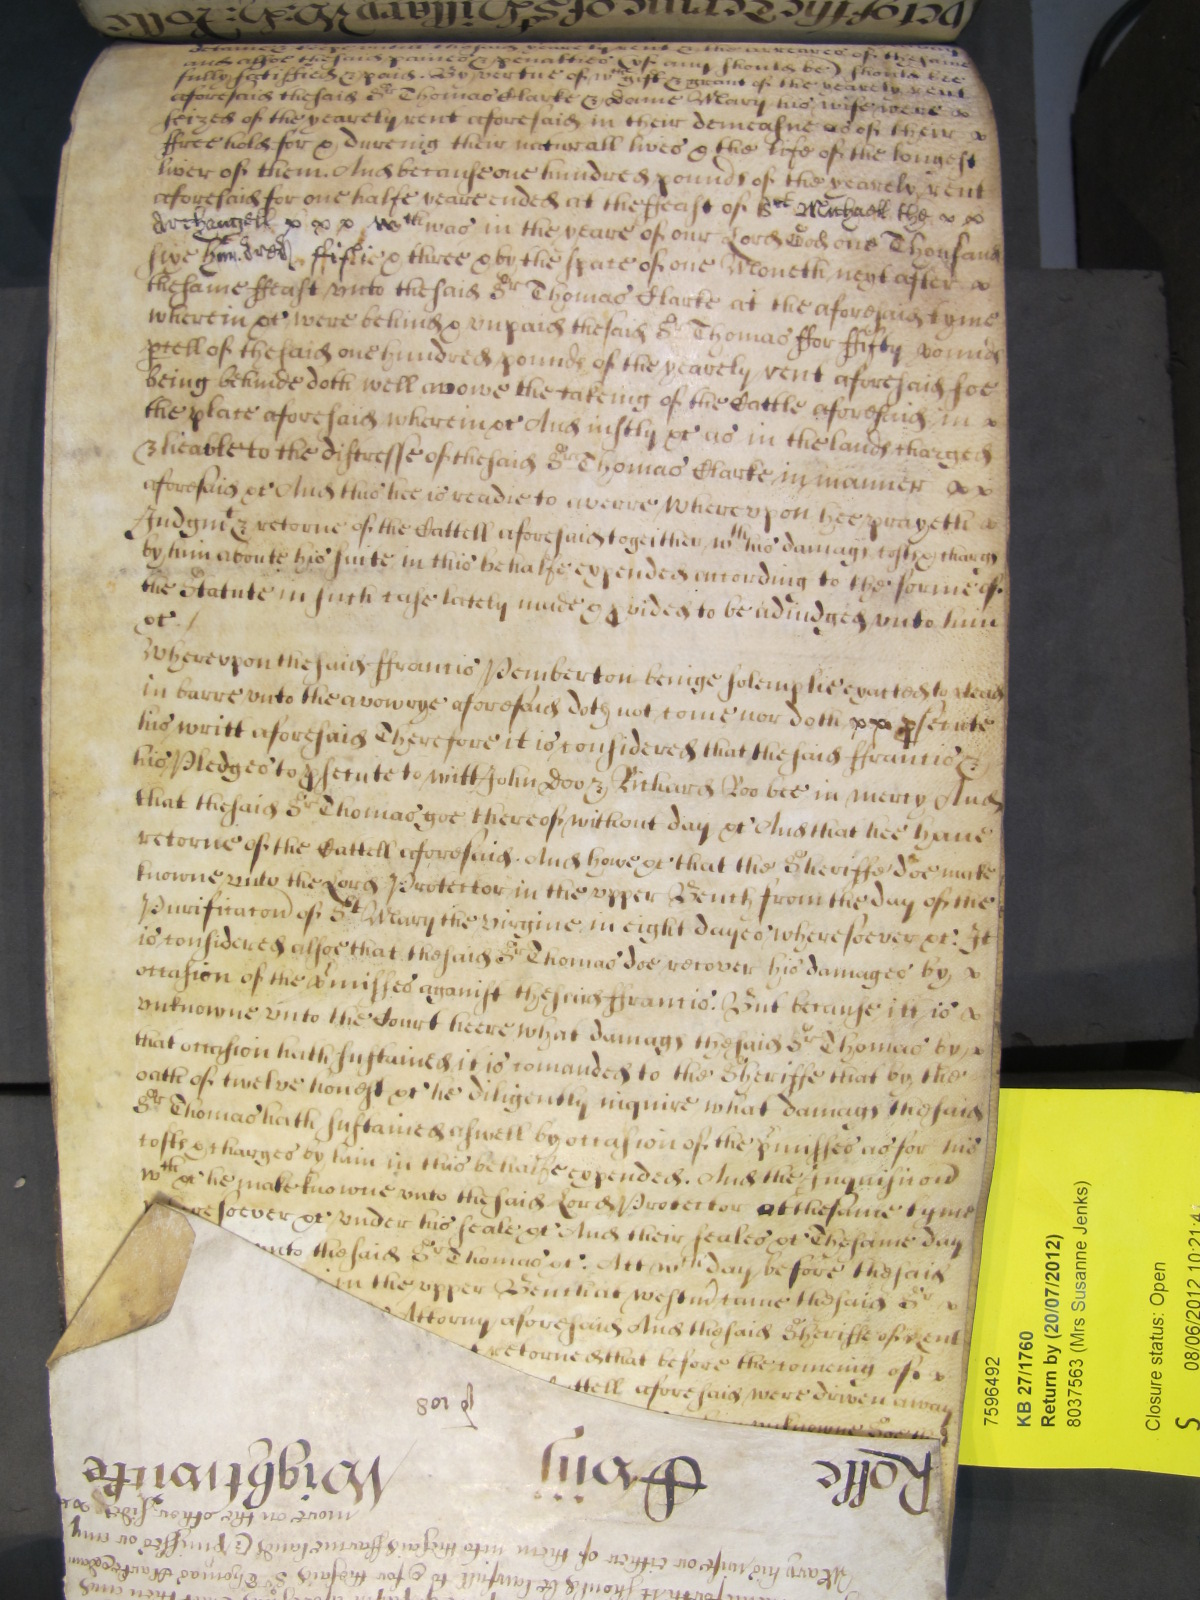 and alsoe the said paines & penalties (yf any should be) should bee
fully satisfied & paid. By vertue of wch gift & grant of the yearely rent
aforesaid the said Sr Thomas Clarke & dame Mary his wife were x
seized of the yearely rent aforesaid in their demeasne as of their x
ffree hold for & dureing their naturall lives & the life of the longest
liver of them. And because one hundred pounds of the yearely rent
aforesaid for one halfe yeare ended at the ffeast of St Michaell the x x
Archangell x x x wch was in the yeare of our Lord God one Thousand
sixe hundred ffiftie & three & by the space of one Moneth next after x
the same ffeast vnto the said Sr Thomas Clarke at the aforesaid tyme
wherein &c were behind & vnpaid the said Sr Thomas ffor ffifty pounds
pcell of the said one hundred pounds of the yearely rent aforesaid soe
being behinde doth well avowe the takeing of the Cattle aforesaid in x
the place aforesaid wherein &c And iustly &c as in the lands charged
& lieable to the distresse of the said Sr Thomas Clarke in manner x x
aforesaid &c And this hee is readie to averre Wherevpon hee prayeth x
Judgmt & retorne of the Cattell aforesaid together wth his damags costs & charges
by him aboute his suite in this behalfe expended according to the forme of
the Statute in such case lately made & pvided to be adiudged vnto him
&c /
Wherevpon the said ffrancis Pemberton benige solemplie exacted to plead
in barre vnto the avowrye aforesaid doth not come nor doth x x psecute
his writt aforesaid Therefore it is considered that the said ffrancis &
his Pledges to psecute to witt John Doo & Richard Roo bee in mercy And
that the said Sr Thomas goe thereof without day &c And that hee have
retorne of the Cattell aforesaid. And howe &c that the Sheriffe doe make
knowne vnto the Lord Protector in the vpper Bench from the day of the
Purificacon of St Mary the virgine in eight dayes wheresoever &c. It
is considered alsoe that the said Sr Thomas doe recover his damages by x
occasion of the pmisses against the said ffrancis. But because itt is x
vnknowne vnto the Court heere what damags the said Sr Thomas by x
that occasion hath sustained it is comanded to the Sheriffe that by the
oath of twelve honest &c he diligently inquire what damags the said
Sr Thomas hath sustained aswell by occasion of the pmisses as for his
costs & charges by him in this behalfe expended. And the inquisicon
wch &c he make knowne vnto the said Lord Protector at the same tyme
wheresoever &c vnder his seale &c And their seales &c The same day
vnto the said Sr Thomas &c. Att wch day before the said
in the vpper Bench at westm came the said Sr x
Attorny aforesaid And the said Sheriffe of Kent
retorned that before the comeing of x
Cattell aforesaid were driven away
vnknowne Soe
7596492
KB 27/1760
Return by (20/07/2012)
8037563 (Mrs Susanne Jenks)
Closure status: Open
08/06/2012 10:21:4
S
p 108
Rolle
Wightwicke
more on the other side